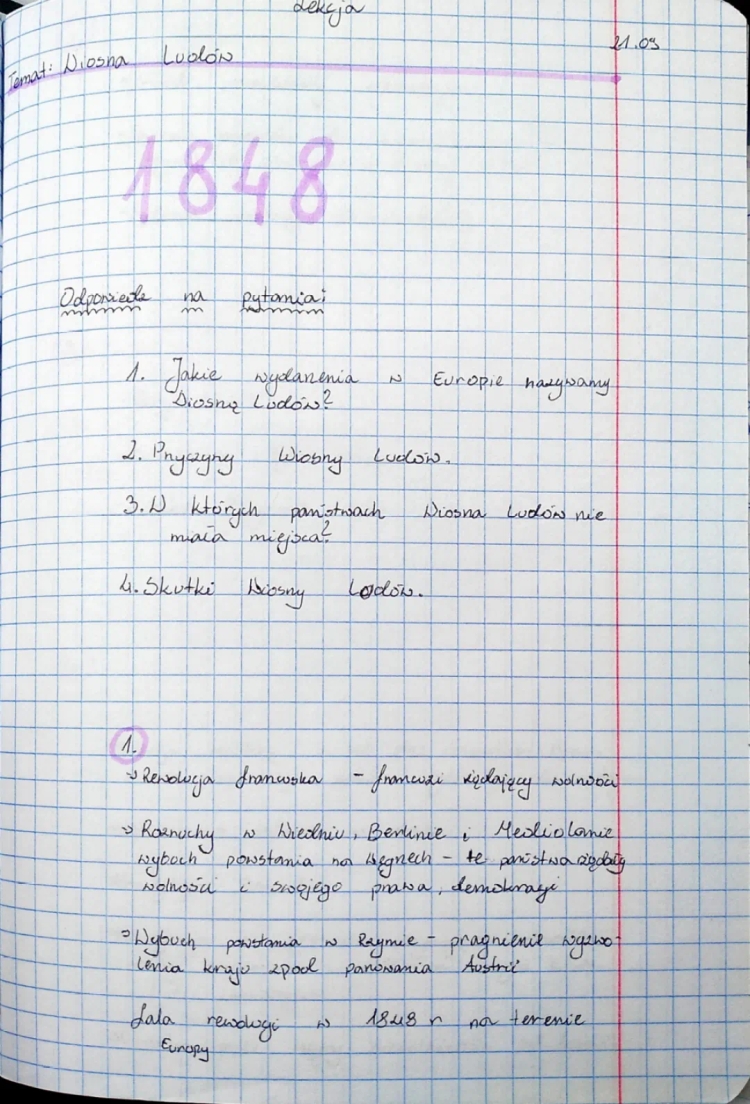 Lekcja
21.09
Temat: Wiosna Ludów
1848
Odpowiedz na pytania:
1. Jakie wydarzenia w Europie nazywamy
Wiosną Ludów?
2. Przyczyny Wiosny Ludów.
3. W których państwach Wiosna Ludów nie
miała miejsca?
4. Skutki Wiosny Ludów.
1.
Rewolucja francuska - francuzi żądający wolności
Rozruchy w Wiedniu, Berlinie i Mediolanie
wybuch powstania na węgrzech - te państwa żądały
wolności i swojego prawa, demokracji
Wybuch powstania w Rzymie - pragnienie wyzwo-
lenia kraju zpod panowania Austrii
fala rewolucji w 1848 r na terenie
Europy